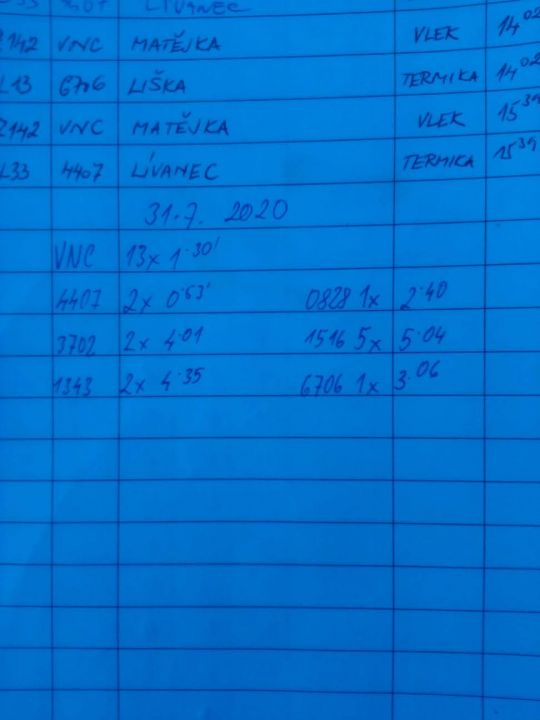 LIVANEC
Z142 VNC MATĚJKA VLEK 14 02
L13 6706 LIŠKA TERMIKA 14 02
Z142 VNC MATĚJKA VLEK 15 39
L33 4407 LÍVANEC TERMIKA 15 39
31.7. 2020
VNC 13x 1·30'
4407 2x 0·53' 0828 1x 2·40
3702 2x 4·01 1516 5x 5·04
1343 2x 4·35 6706 1x 3·06